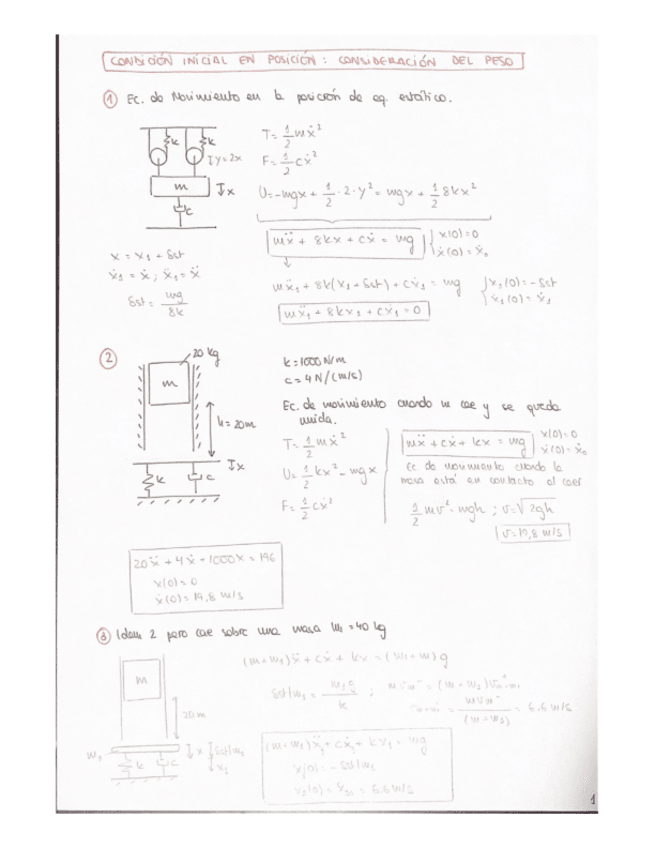 CONDICIÓN INICIAL EN POSICIÓN: CONSIDERACIÓN DEL PESO
① Ec. de Movimiento en la posición de eq. estático.
k k
y=2x
m
x
c
T = 1/2 mẋ²
F = 1/2 cẋ²
U = -mgx + 1/2 · 2 · y² = mgx + 1/2 8kx²
mẍ + 8kx + cẋ = mg { x(0)=0
ẋ(0)=ẋ₀
x = x₁ + δst
ẋ₁ = ẋ ; ẍ₁ = ẍ
δst = mg/8k
mẍ₁ + 8k(x₁ + δst) + cẋ₁ = mg { x₁(0) = -δst
ẋ₁(0) = ẋ₁
mẍ₁ + 8kx₁ + cẋ₁ = 0
② 20 kg
m
h = 20m
x
k c
k = 1000 N/m
c = 4 N/(m/s)
Ec. de movimiento cuando m cae y se queda
unida.
T = 1/2 mẋ²
U = 1/2 kx² - mgx
F = 1/2 cẋ²
mẍ + cẋ + kx = mg x(0)=0
ẋ(0)=ẋ₀
Ec de movimiento cuando la
masa está en contacto al caer
1/2 mv² = mgh ; v = √2gh
v = 19,8 m/s
20ẍ + 4ẋ + 1000x = 196
x(0) = 0
ẋ(0) = 19,8 m/s
③ Idem 2 pero cae sobre una masa m₁ = 40 kg
m
20 m
m₁
k c
x δst/m₁
x₁
(m+m₁)ẍ + cẋ + kx = (m₁+m)g
δst/m₁ = m₁g/k ;
= 6.6 m/s
(m+m₁)ẍ₁ + cẋ₁ + kx₁ = mg
x₁(0) = -δst/m₁
= 6.6 m/s
1